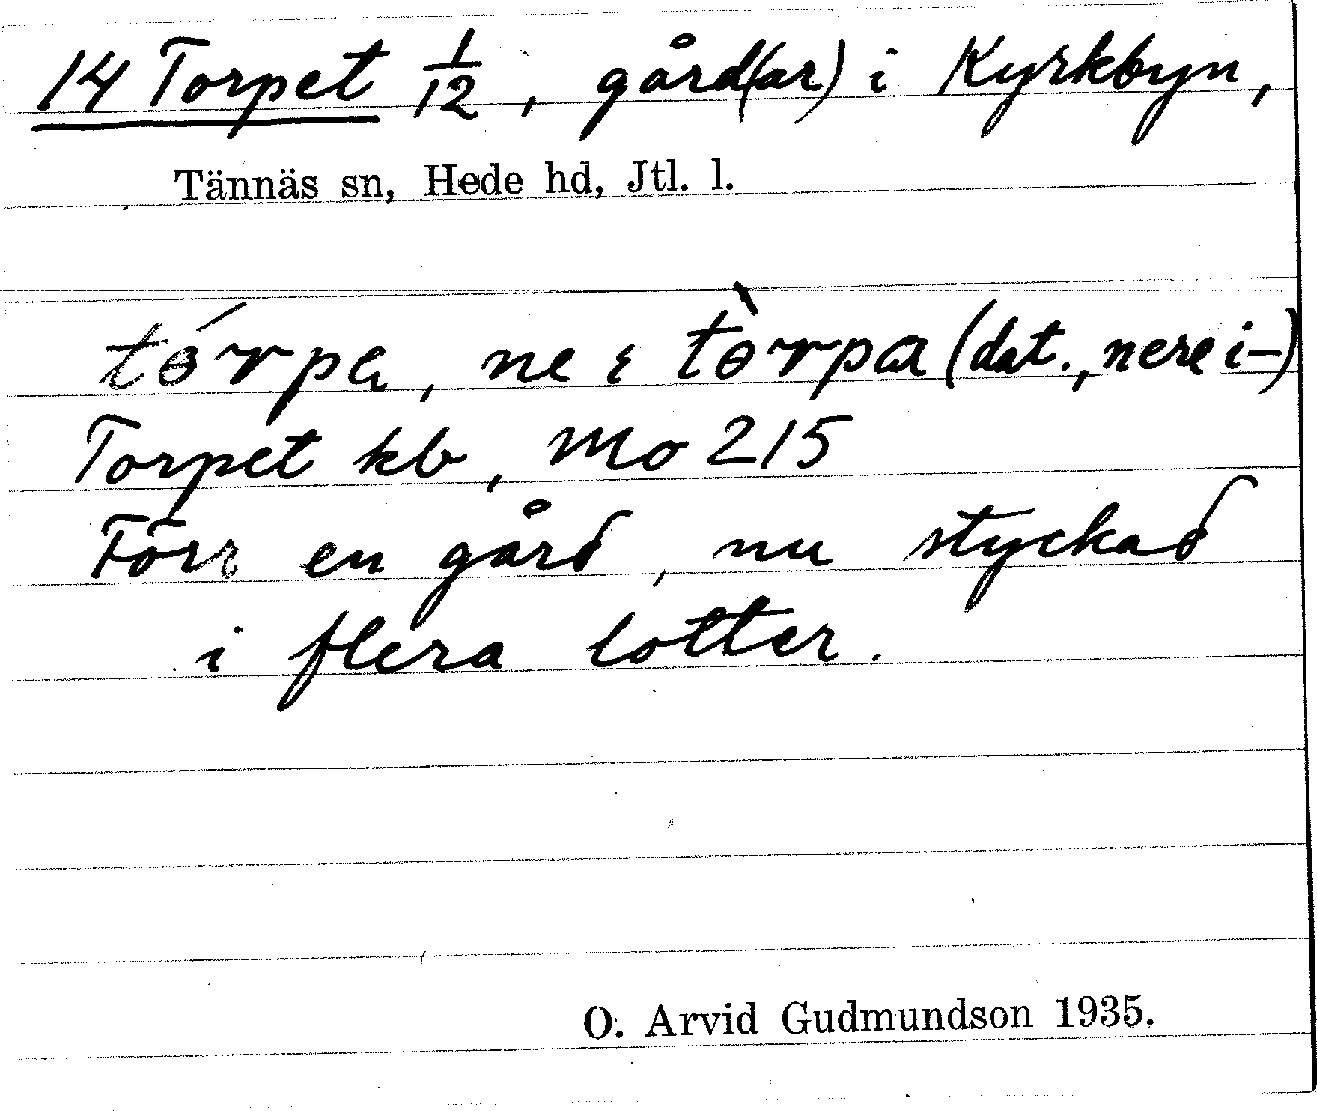 14 Torpet 1/12, gård(ar) i Kyrkbyn,
Tännäs sn, Hede hd, Jtl. l.
tɵ́rpa, ne ι tɵ̀rpa (dat., nere i-)
Torpet kb, mo 215
Förr en gård, nu styckad
i flera lotter.
O. Arvid Gudmundson 1935.